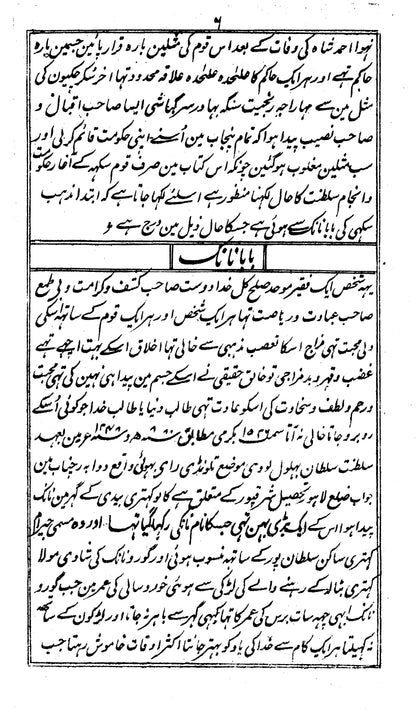 ٦
نہوا احمد شاہ کی وفات کے بعد اس قوم کی مثلین بارہ قرار پائین جسمین بارہ
حاکم تہے اور ہر ایک حاکم کا علحدہ علحدہ علاقہ محدود تہا آخر سکرچکیون کی
مثل مین سے مہاراجہ رنجیت سنگہ بہادر سرگباشی ایسا صاحب اقبال و
صاحب نصیب پیدا ہوا کہ تمام پنجاب مین اُسنے اپنی حکومت قائم کر لی اور
سب مثلین مغلوب ہو گئین چونکہ اس کتاب مین صرف قوم سکہہ کے آغاز حکومت
و انجام سلطنت کا حال لکہنا منظور ہے اسلئے لکہا جاتا ہے کہ ابتدا مذہب
سکہی کی بابا نانک سے ہوئی ہے جسکا حال ذیل مین درج ہے
بابا نانک
یہہ شخص ایک فقیر موحد صلح کل خدا دوست صاحب کشف و کرامت و بی طمع
صاحب عبادت و ریاضت تہا ہر ایک شخص اور ہر ایک قوم کے ساتہہ اسکی
دلی محبت تہی مزاج اسکا تعصب مذہبی سے خالی تہا اخلاق اسکے بہت اچہے تہے
غضب و قہر و بدمزاجی تو خالق حقیقی نے اسکے جسم مین پیدا ہی نہین کی تہی محبت
و رحم و لطف و سخاوت کی اسکو عادت تہی طالب دنیا یا طالب خدا جو کوئی اُسکے
روبرو جاتا خالی نہ آتا سمہ ۱۵۲٦ بکرمی مطابق ھ و ۱۴٦۸ عیسوین بعہد
سلطنت سلطان بہلول لودہی موضع تلونڈی رای بہوئی واقع دوابہ رچناب مین
جواب ضلع لاہور تحصیل شرقپور کے متعلق ہے کالو کہتری بیدی کے گہر مین نانک
پیدا ہوا اس کے ایک بڑی بہن تہی جسکا نام نانکی رکہا گیا تہا اور وہ مسمی جیرام
کہتری ساکن سلطان پور کے ساتہہ منسوب ہوئی اور گورو نانک کی شادی مولا
کہتری بٹالہ کے رہنے والے کی لڑکی سے ہوئی خورد سالی کی عمر مین جب گورو
نانک ابہی چہہ سات برس کی عمر کا تہا کبہی گہر سے باہر نہ جاتا اور لڑکون کے ساتہہ
نہ کہیلتا ہر ایک کام سے خدا کی یاد کو بہتر جانتا اکثر اوقات خاموش رہتا جب